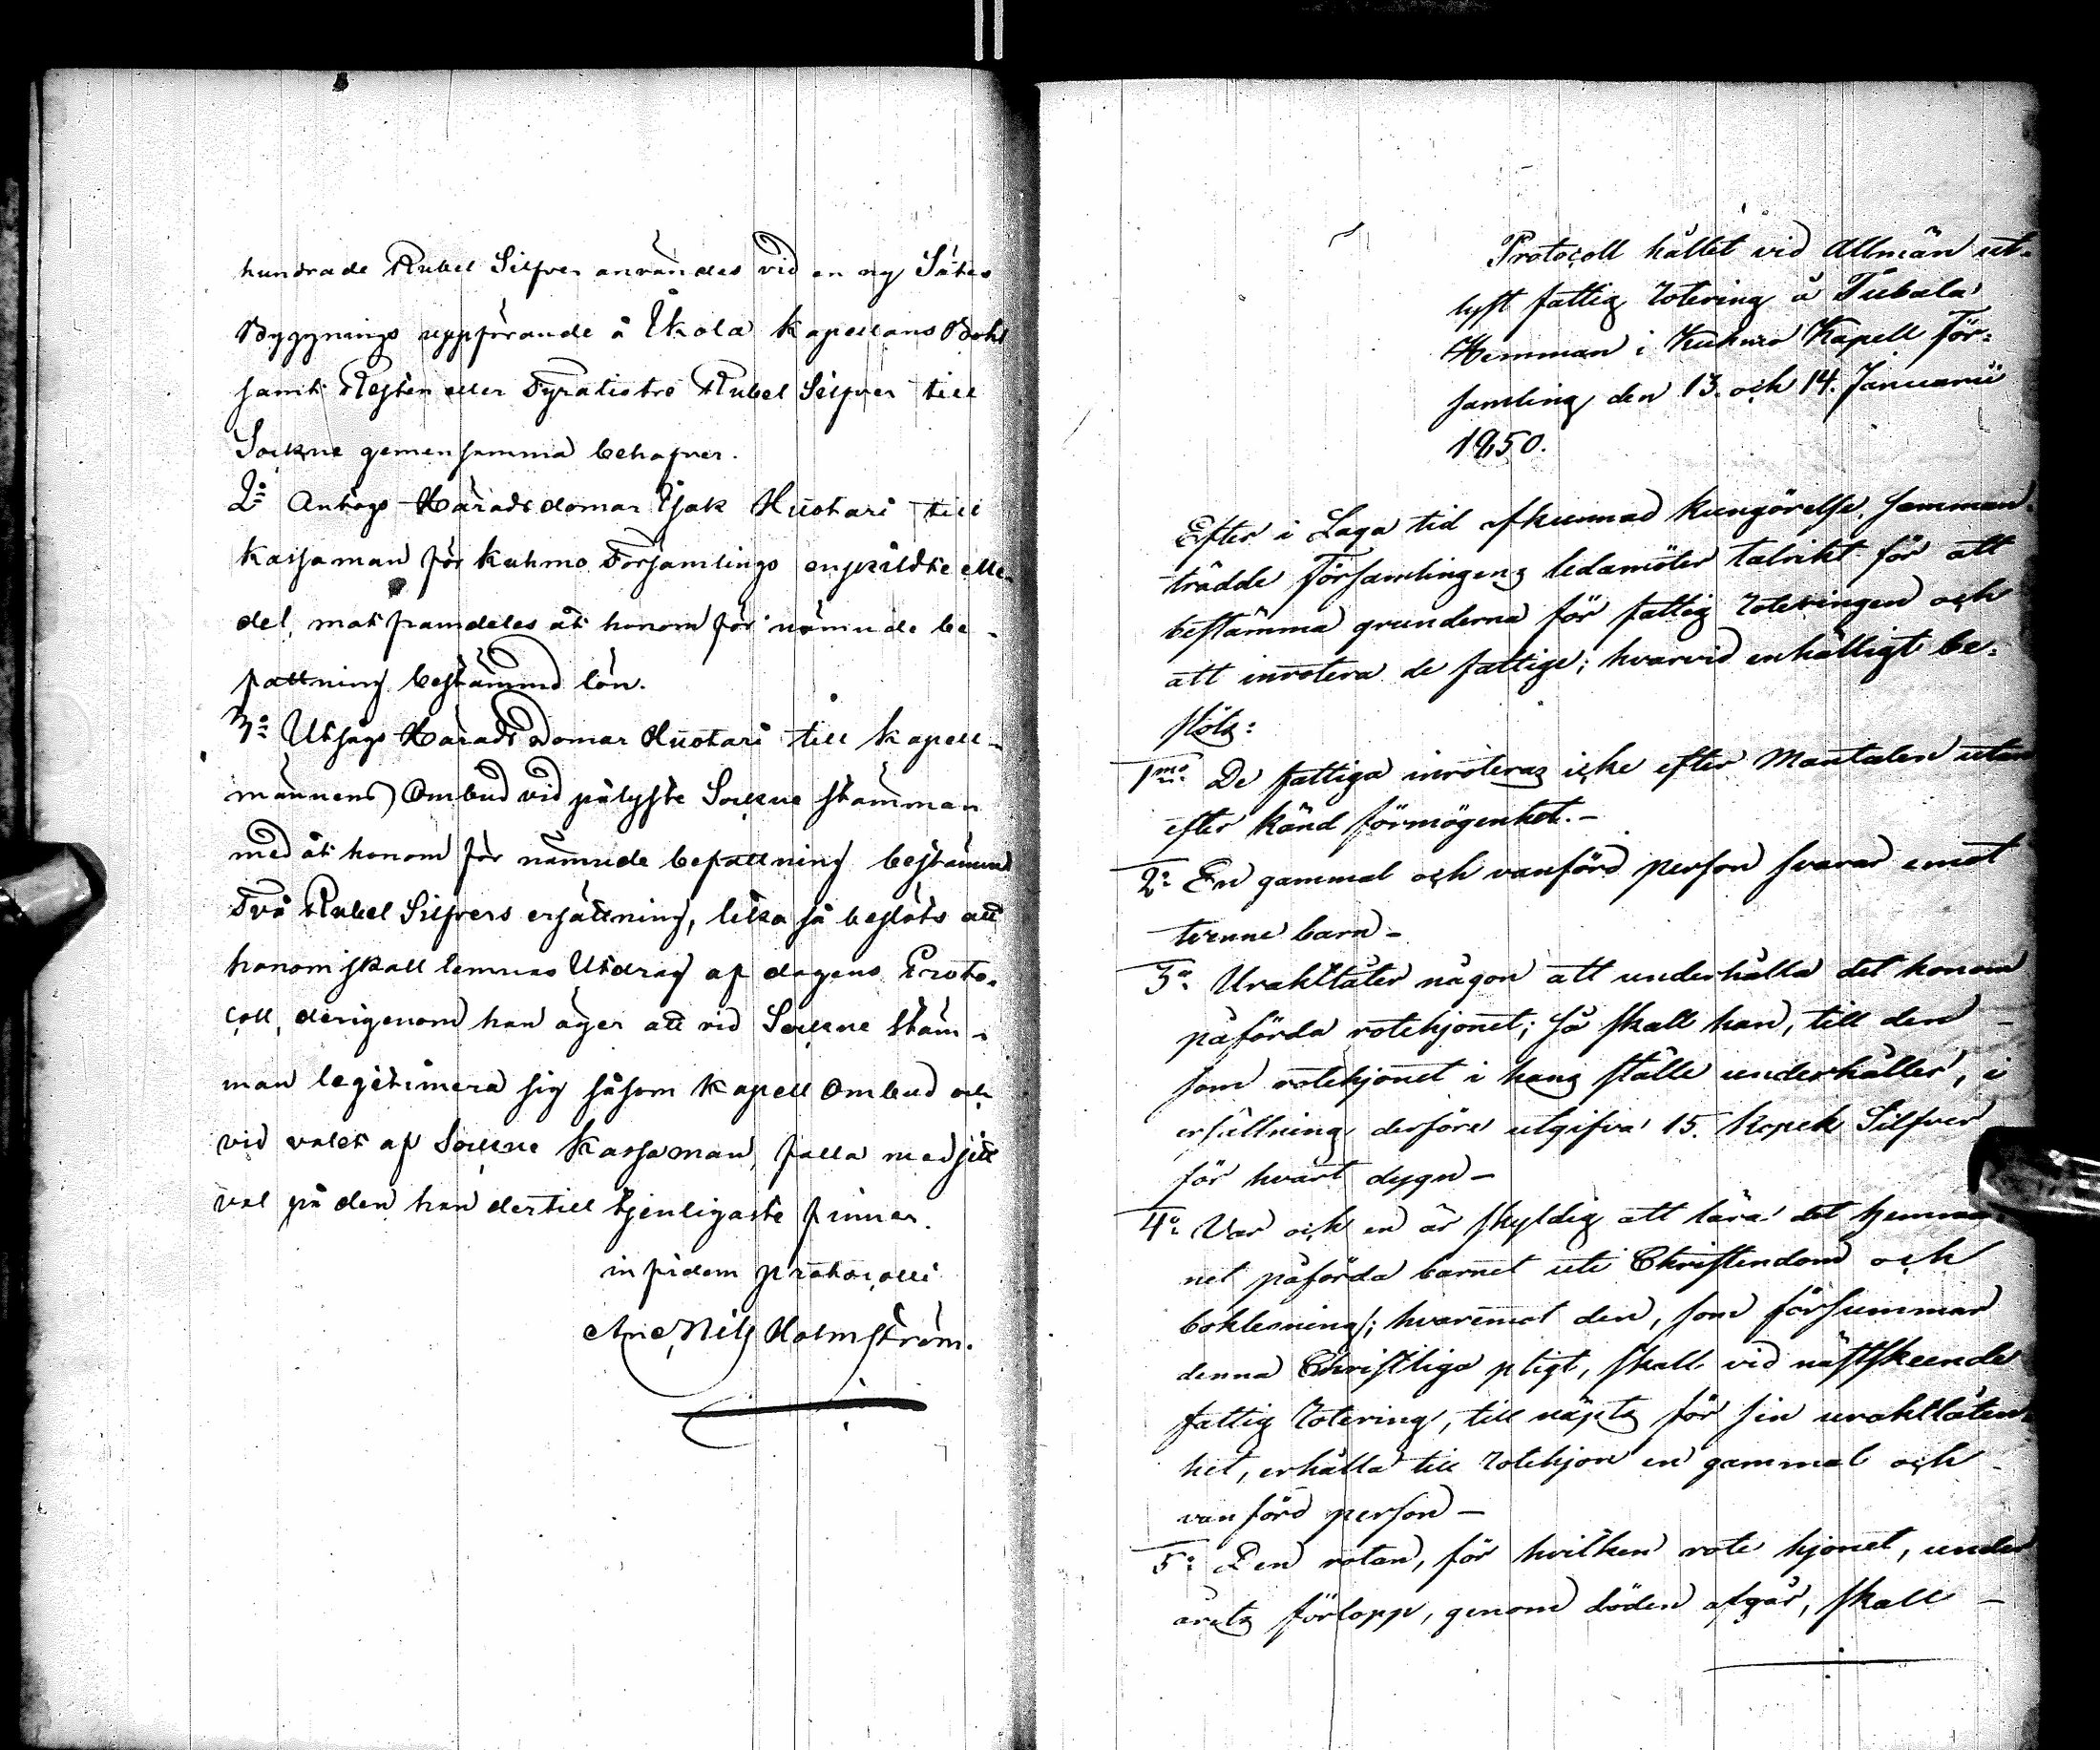 hundrade Rubel Silfver användes vid en ny Sätes
Byggnings uppförande å Ykola Kapellans Bohl
samt Resten eller Fyratiotre Rubel Silfver till
Sockne gemensamma behofver.
2º Antogs Häradsdomar Isak Huotari till
Kassaman för Kuhmo Församlings enskildte
del, mot framdeles åt honom för nämnde be-
fattning bestämmd lön.
3º Utsågs Härads Domar Huotari till Kapell-
männens Ombud vid pålyste Sockne stämman
med åt honom för nämnde befattning bestämmd
Två Rubel Silfvers ersättning, lika så beslöts att
honom skall lemnas Utdrag af dagens Proto-
coll, derigenom han äger att vid Sockne stäm-
man legitimera sig såsom Kapell Ombud och
vid valet af Sockne Kassaman, falla med sitt
val på den han dertill tjenligaste finner.
in fidem protocolli
Nils Holmström.
Protocoll hållet vid Allmän ut-
lyst fattig rotering å Tubala
Hemman i Kuhmo Kapell För-
samling den 13. och 14. Januarii
1850.
Efter i Laga tid afkunnad Kungörelse, samman-
trädde Församlingens ledamöter talrikt för att
bestämma grunderna för fattig roteringen och
att inrotera de fattige; hvarvid enhälligt be-
slöts:
1mo De fattiga inroteras icke efter Mantalen utan
efter känd förmögenhet. -
2º En gammal och vanförd person svarar emot
tvenne barn -
3º Uraktlåter någon att underhålla det honom
påförda rotehjonet; så skall han, till den -
som rotehjonet i hans ställe underhåller, i
ersättning derföre utgifva 15. kopek Silfver
för hvart dygn -
4º Var och en är skyldig att lära det hemma-
net påförda barnet uti Christendom och
boklesning; hvaremot den, som försummar
denna Christliga pligt, skall vid nästskeende
fattig rotering, till näpst för sin uraktlåten-
het, erhålla till rotehjon en gammal och -
vanförd person -
5º Den rotan, för hvilken rote hjonet, under
årets förlopp, genom döden afgår, skall -